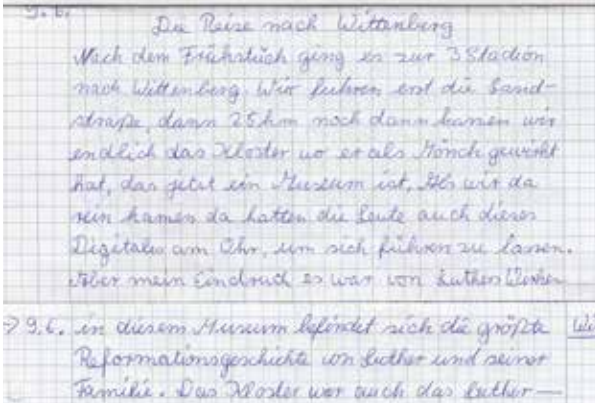 9.6.
Die Reise nach Wittenberg
Nach dem Frühstück ging es zur 3 Stadion
nach Wittenberg. Wir fuhren erst die Land-
straße, dann 25km noch dann kamen wir
endlich das Kloster wo er als Mönch gewirkt
hat, das jetzt ein Museum ist, Als wir da
rein kamen da hatten die Leute auch dieses
Digitales am Ohr, um sich führen zu lassen.
Aber mein Eindruck es war von Luthers
→ 9.6. in diesem Museum befindet sich die größte
Reformationsgeschichte von Luther und seiner
Familie. Das Kloster war auch das Luther-